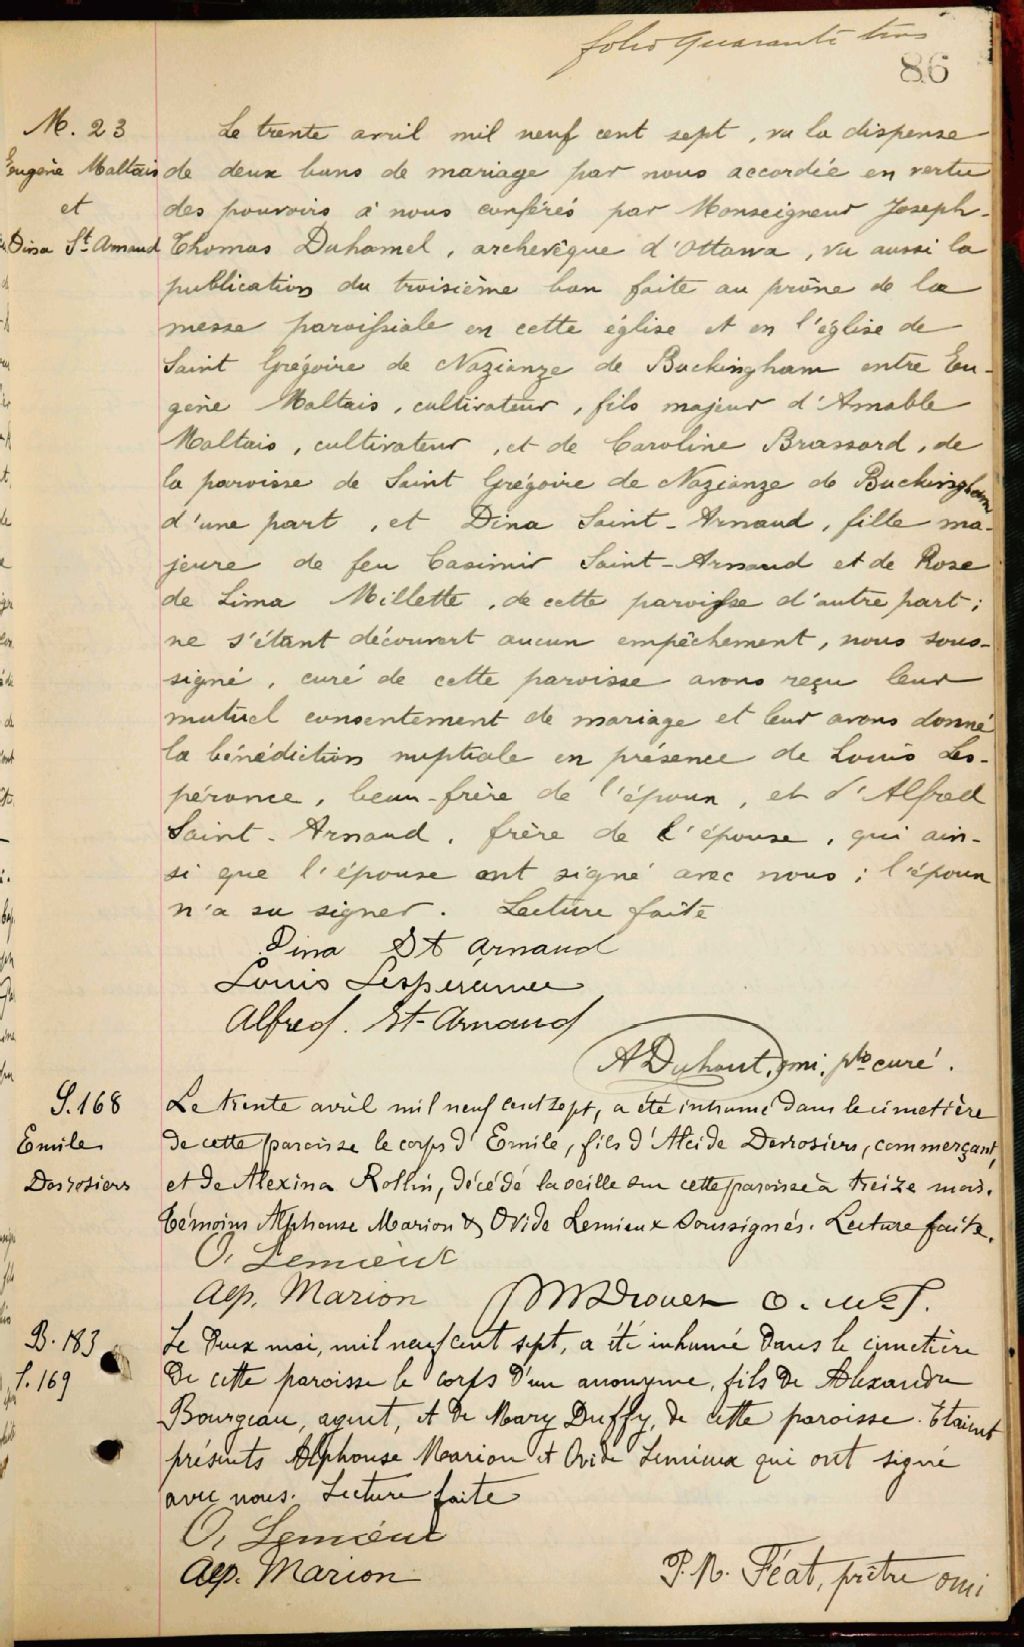 folio quarante trois
86
M. 23
Eugène Maltais
et
Dina St. Arnaud
Le trente avril mil neuf cent sept, vu la dispense
de deux bans de mariage par nous accordée en vertu
des pouvoirs à nous conférés par Monseigneur Joseph-
Thomas Duhamel, archevêque d'Ottawa, vu aussi la
publication du troisième ban faite au prône de la
messe paroissiale en cette église et en l'église de
Saint Grégoire de Nazianze de Buckingham entre Eu-
gène Maltais, cultivateur, fils majeur d'Amable
Maltais, cultivateur, et de Caroline Brassard, de
la paroisse de Saint Grégoire de Nazianze de Buckingham
d'une part, et Dina Saint-Arnaud, fille ma-
jeure de feu Casimir Saint-Arnaud et de Rose
de Lima Millette, de cette paroisse d'autre part;
ne s'étant découvert aucun empêchement, nous sous-
signé, curé de cette paroisse avons reçu leur
mutuel consentement de mariage et leur avons donné
la bénédiction nuptiale en présence de Louis Les-
pérance, beau-frère de l'époux, et d'Alfred
Saint-Arnaud, frère de l'épouse, qui ain-
si que l'épouse ont signé avec nous; l'époux
n'a su signer. Lecture faite
Dina St Arnaud
Louis Lespérance
Alfred. St-Arnaud
A Duhaut, omi. ptre curé.
S. 168
Emile
Desrosiers
Le trente avril mil neuf cent sept, a été inhumé dans le cimetière
de cette paroisse le corps d'Emile, fils d'Alcide Desrosiers, commerçant,
et de Alexina Rollin, décédé la veille sur cette paroisse à treize mois.
Témoins Alphonse Marion & Ovide Lemieux soussignés. Lecture faite.
O. Lemieux
Alp. Marion
Drouet O. M. I.
B. 183
S. 169
Le deux mai, mil neuf cent sept, a été inhumé dans le cimetière
de cette paroisse le corps d'un anonyme, fils de Alexandre
Bourgeau, agent, et de Mary Duffy, de cette paroisse. Etaient
présents Alphonse Marion et Ovide Lemieux qui ont signé
avec nous. Lecture faite
O. Lemieux
Alp. Marion
P. N. Féat, prêtre omi